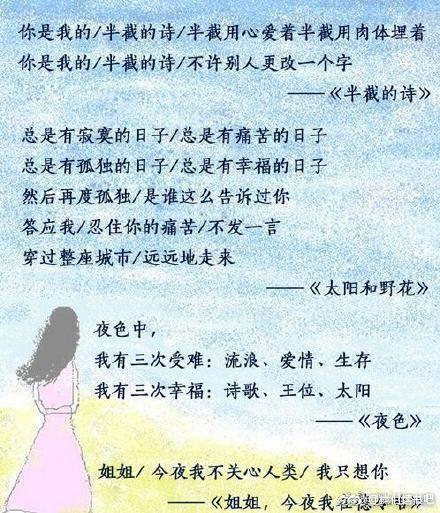 你是我的/半截的诗/半截用心爱着半截用肉体埋着
你是我的/半截的诗/不许别人更改一个字
——《半截的诗》
总是有寂寞的日子/总是有痛苦的日子
总是有孤独的日子/总是有幸福的日子
然后再度孤独/是谁这么告诉过你
答应我/忍住你的痛苦/不发一言
穿过整座城市/远远地走来
——《太阳和野花》
夜色中,
我有三次受难:流浪、爱情、生存
我有三次幸福:诗歌、王位、太阳
——《夜色》
姐姐/ 今夜我不关心人类/ 我只想你
——《姐姐, 今夜我在德令哈》